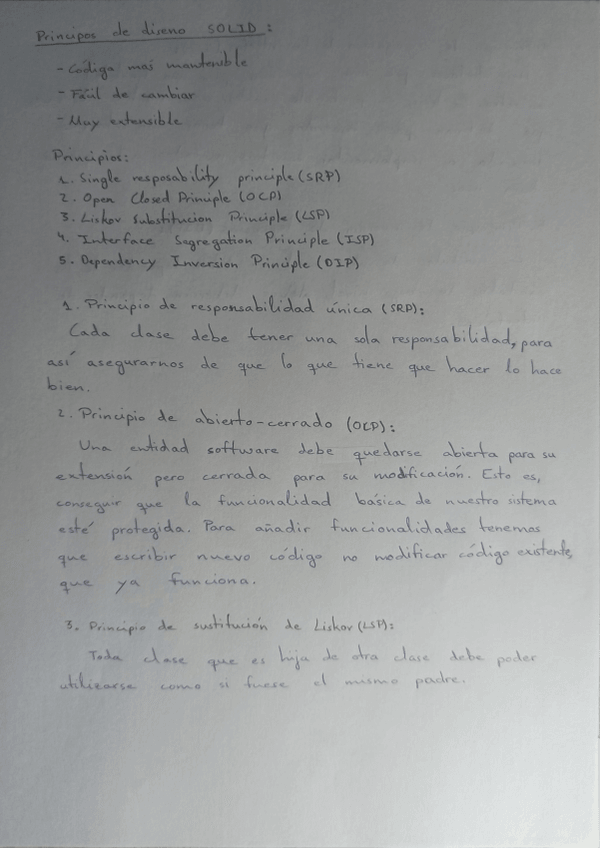 Principos de diseno SOLID:
- Código mas mantenible
- Fácil de cambiar
- Muy extensible
Principios:
1. Single resposability principle (SRP)
2. Open Closed Principle (OCP)
3. Liskov Substitucion Principle (LSP)
4. Interface Segregation Principle (ISP)
5. Dependency Inversion Principle (DIP)
1. Principio de responsabilidad única (SRP):
Cada clase debe tener una sola responsabilidad, para
así asegurarnos de que lo que tiene que hacer lo hace
bien.
2. Principio de abierto-cerrado (OCP):
Una entidad software debe quedarse abierta para su
extensión pero cerrada para su modificación. Esto es,
conseguir que la funcionalidad básica de nuestro sistema
esté protegida. Para añadir funcionalidades tenemos
que escribir nuevo código no modificar código existente,
que ya funciona.
3. Principio de sustitución de Liskov (LSP):
Toda clase que es hija de otra clase debe poder
utilizarse como si fuese el mismo padre.